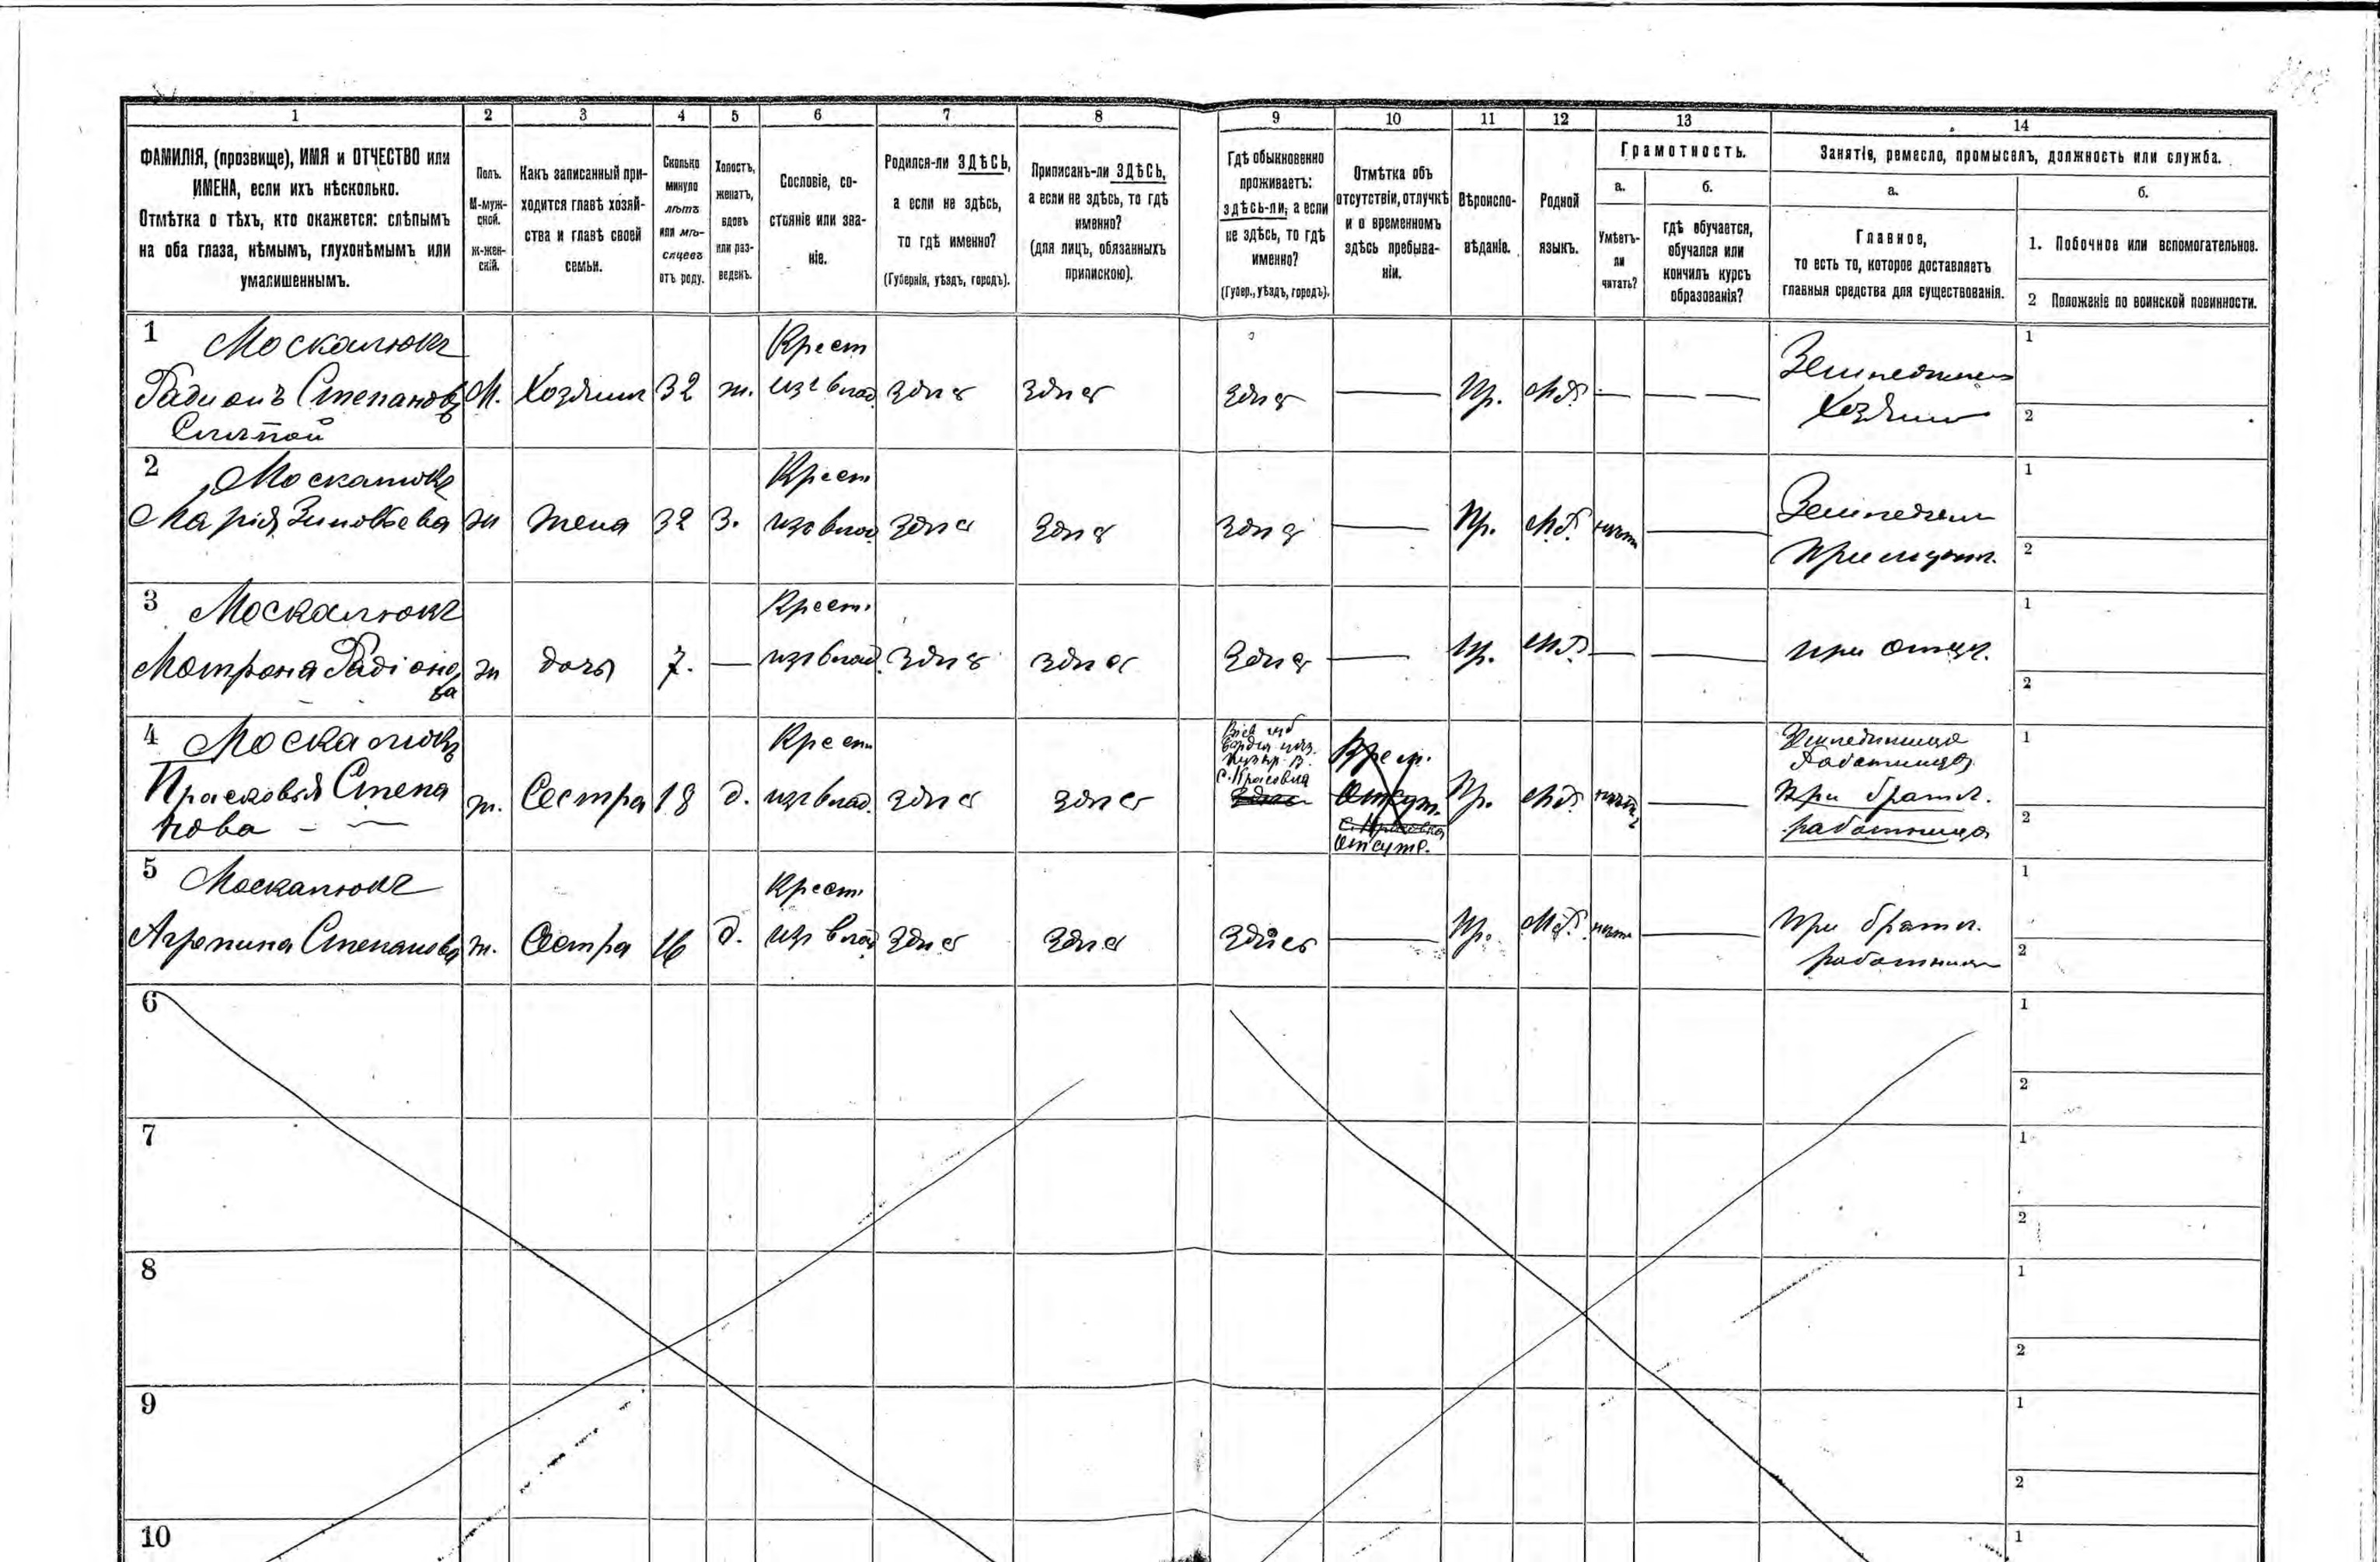 1
2
3
4
5
6
7
8
9
10
11
12
13
14
ФАМИЛІЯ, (прозвище), ИМЯ и ОТЧЕСТВО или
ИМЕНА, если ихъ нѣсколько.
Отмѣтка о тѣхъ, кто окажется: слѣпымъ
на оба глаза, нѣмымъ, глухонѣмымъ или
умалишеннымъ.
Полъ.
М-муж-
ской.
ж-жен-
скій.
Какъ записанный при-
ходится главѣ хозяй-
ства и главѣ своей
семьи.
Сколько
минуло
лѣтъ
или мѣ-
сяцевъ
отъ роду.
Холостъ,
женатъ,
вдовъ
или раз-
веденъ.
Сословіе, со-
стояніе или зва-
ніе.
Родился-ли ЗДѢСЬ,
а если не здѣсь,
то гдѣ именно?
(Губернія, уѣздъ, городъ).
Приписанъ-ли ЗДѢСЬ,
а если не здѣсь, то гдѣ
именно?
(для лицъ, обязанныхъ
припискою).
Гдѣ обыкновенно
проживаетъ:
здѣсь-ли, а если
не здѣсь, то гдѣ
именно?
(Губер., уѣздъ, городъ).
Отмѣтка объ
отсутствіи, отлучкѣ
и о временномъ
здѣсь пребыва-
ніи.
Вѣроиспо-
вѣданіе.
Родной
языкъ.
Грамотность.
а.
Умѣетъ-
ли
читать?
б.
гдѣ обучается,
обучался или
кончилъ курсъ
образованія?
Занятіе, ремесло, промыселъ, должность или служба.
а.
Главное,
то есть то, которое доставляетъ
главныя средства для существованія.
б.
1. Побочное или вспомогательное.
2 Положеніе по воинской повинности.
1 Москалюкъ
Радионъ Степановъ
Слѣпой
М.
Хозяин
32
ж.
Крест
изъ влад.
здѣсь
здѣсь
здѣсь
Пр.
Мр.
Земледѣлецъ
Хозяин
1
2
2 Москалюкъ
Марія Зиновьева
ж
жена
32
з.
Крест
изъ влад
здѣсь
здѣсь
здѣсь
Пр.
Мр.
нѣтъ
Земледѣл
При мужѣ.
1
2
3 Москалюкъ
Мотрона Радіоно
ва
ж
дочь
7.
Крест.
изъ влад.
здѣсь
здѣсь
здѣсь
Пр.
Мр.
при отцѣ.
1
2
4 Москалюкъ
Прасковья Степа
нова
ж.
Сестра
18
д.
Крест
изъ влад.
здѣсь
здѣсь
С. Красовка
здѣсь
Врем.
Отсут.
С. Красовка
Отсутс.
Пр.
Мр.
нѣтъ
Работница
При братѣ.
работница
1
2
5 Москалюкъ
Агропина Степанова
ж.
Сестра
16
д.
Крест.
изъ влад
здѣсь
здѣсь
здѣсь
Пр.
Мр.
нѣтъ
При братѣ.
работница
1
2
6
1
2
7
1
2
8
1
2
9
1
2
10
1